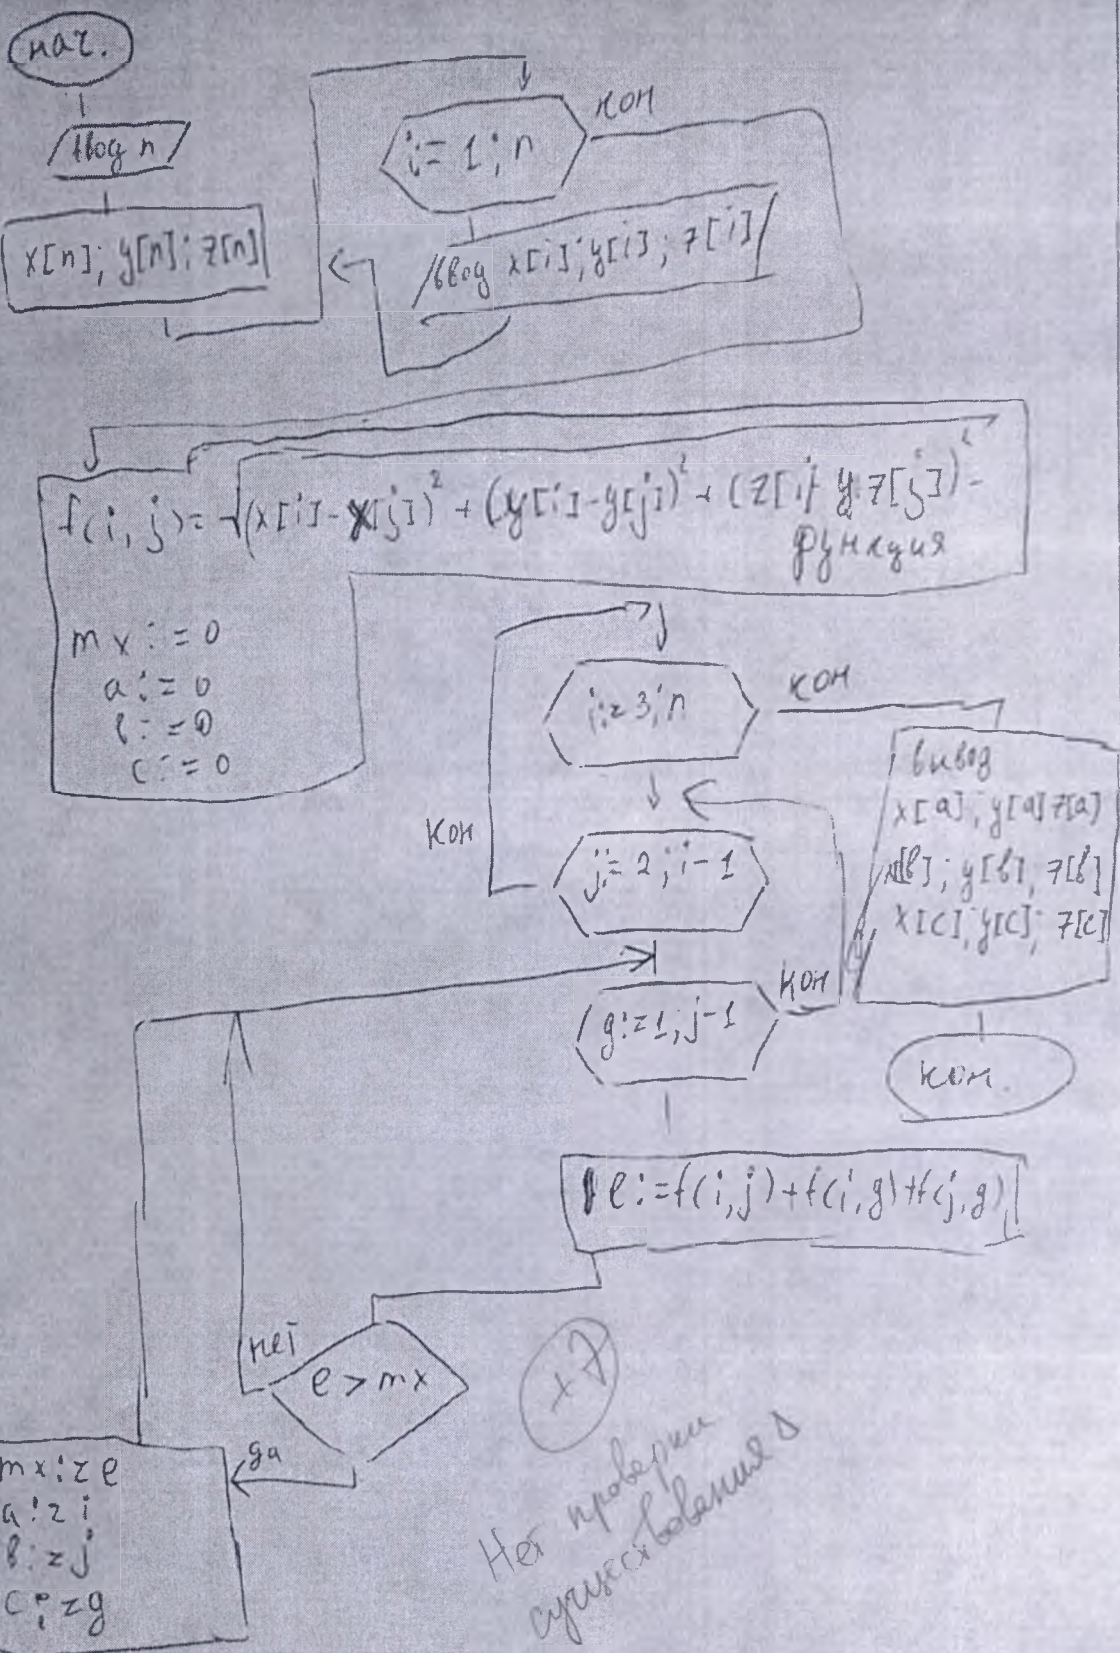 нач.
ввод n
x[n]; y[n]; z[n]
i:= 1; n
кон
ввод x[i]; y[i]; z[i]
f(i, j) = √(x[i]-x[j])² + (y[i]-y[j])² + (z[i]- z[j])² -
функция
mx := 0
a := 0
b := 0
c := 0
i:=3; n
кон
j:= 2; i-1
кон
g:=1; j-1
кон
вывод
x[a]; y[a] z[a]
x[b]; y[b]; z[b]
x[c]; y[c]; z[c]
кон.
e:=f(i,j)+f(i,g)+f(j,g)
e > mx
нет
да
mx:=e
a:=i
b:=j
c:=g
+7
Нет проверки
существования Δ